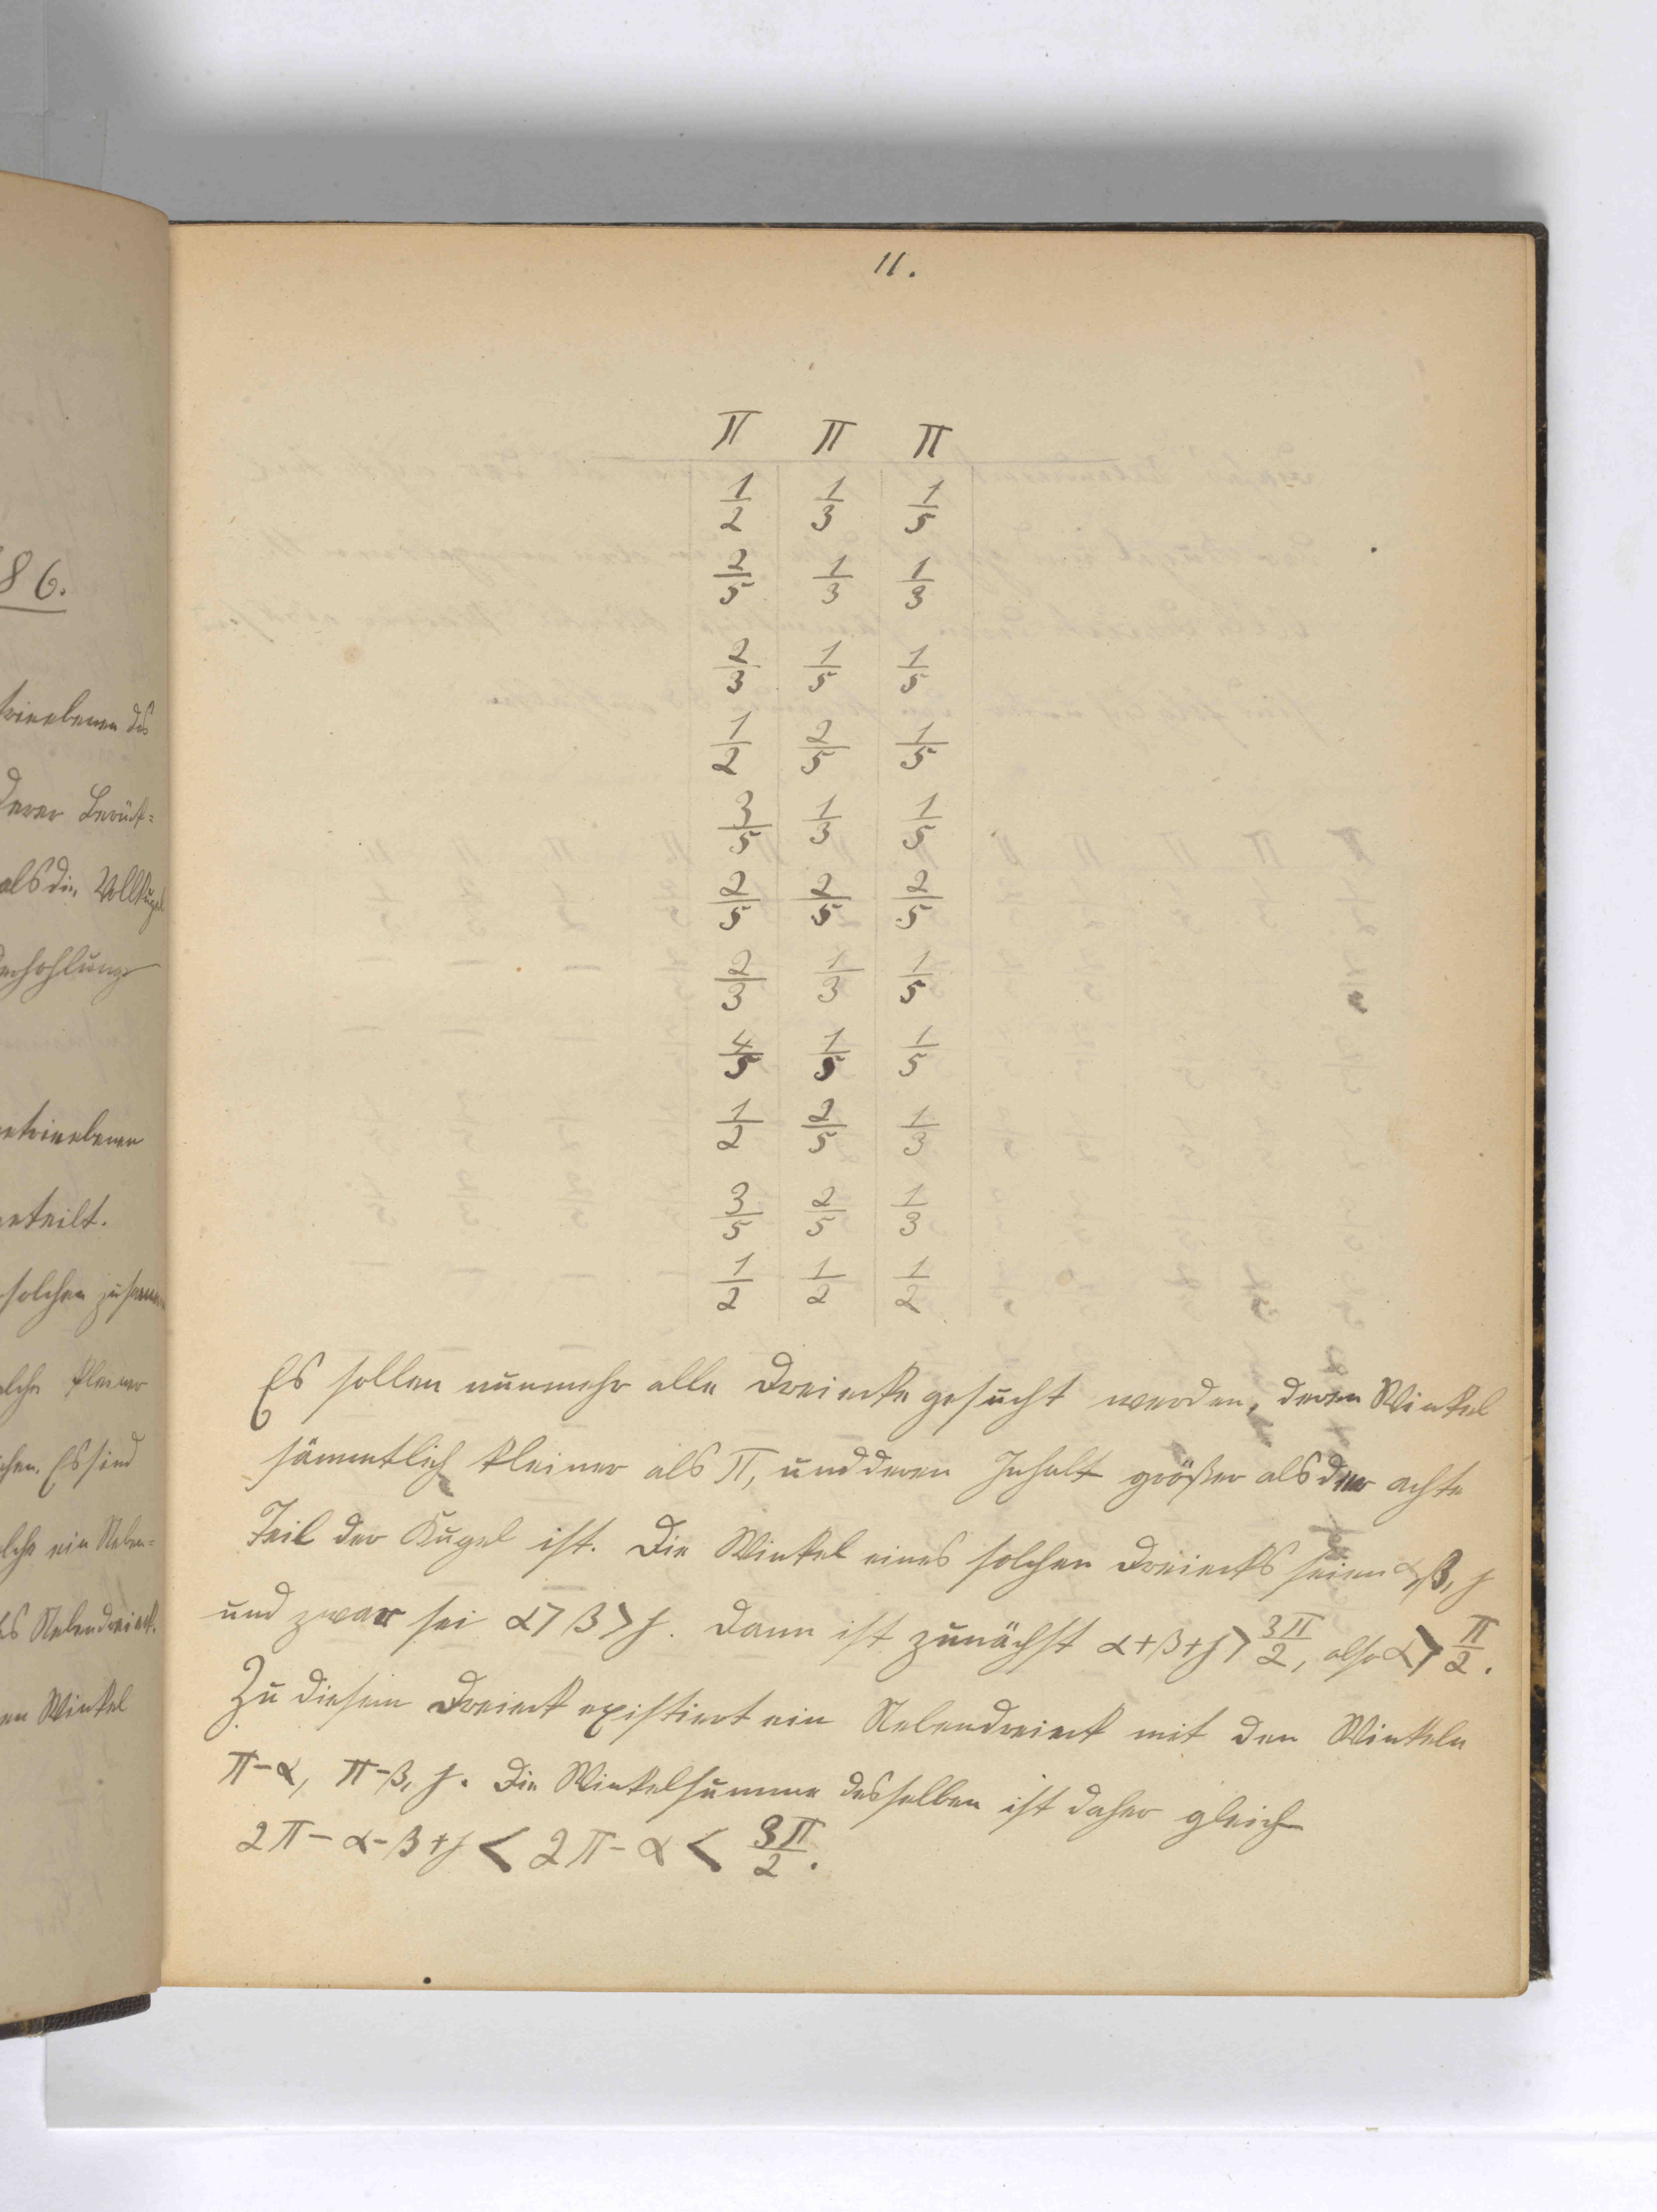 86.
des
Voll
teilt.
solchen
kleiner
Es sind
ein Neben=
Nebendreieck.
Winkel
11.
π π π
1/2 1/3 1/5
2/5 1/3 1/3
2/3 1/5 1/5
1/2 2/5 1/5
3/5 1/3 1/5
2/5 2/5 2/5
2/3 1/3 1/5
4/5 1/5 1/5
1/2 2/5 1/3
3/5 2/5 1/3
1/2 1/2 1/2
Es sollen nunmehr alle Dreiecke gesucht werden, deren Winkel
sämmtlich kleiner als π, und deren Inhalt größer als der achte
Teil der Kugel ist. Die Winkel eines solchen Dreiecks seien α, β, γ
und zwar sei α > β > γ. Dann ist zunächst α+β+γ > 3π/2, also α > π/2.
Zu diesem Dreieck existiert ein Nebendreieck mit den Winkeln
π-α, π-β, γ. Die Winkelsumme desselben ist daher gleich
2π-α-β+γ < 2π-α < 3π/2.